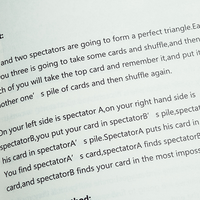 t:
and two spectators are going to form a perfect triangle.Ea
ou three is going to take some cards and shuffle,and then
ch of you will take the top card and remember it,and put it
other one's pile of cards and then shuffle again.
On your left side is spectator A,on your right hand side is
spectatorB,you put your card in spectatorB's pile,spectat
his card in spectatorA's pile.SpectatorA puts his card in
You find spectatorA's card,spectatorA finds spectatorB
card,and spectatorB finds your card in the most impos